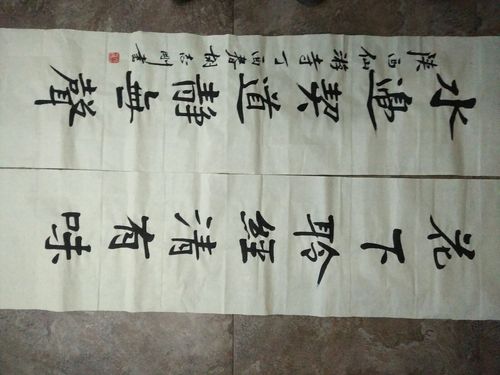 花下聆經清有味
水邊契道靜無聲
陝西仙游寺丁酉春胡志剛書